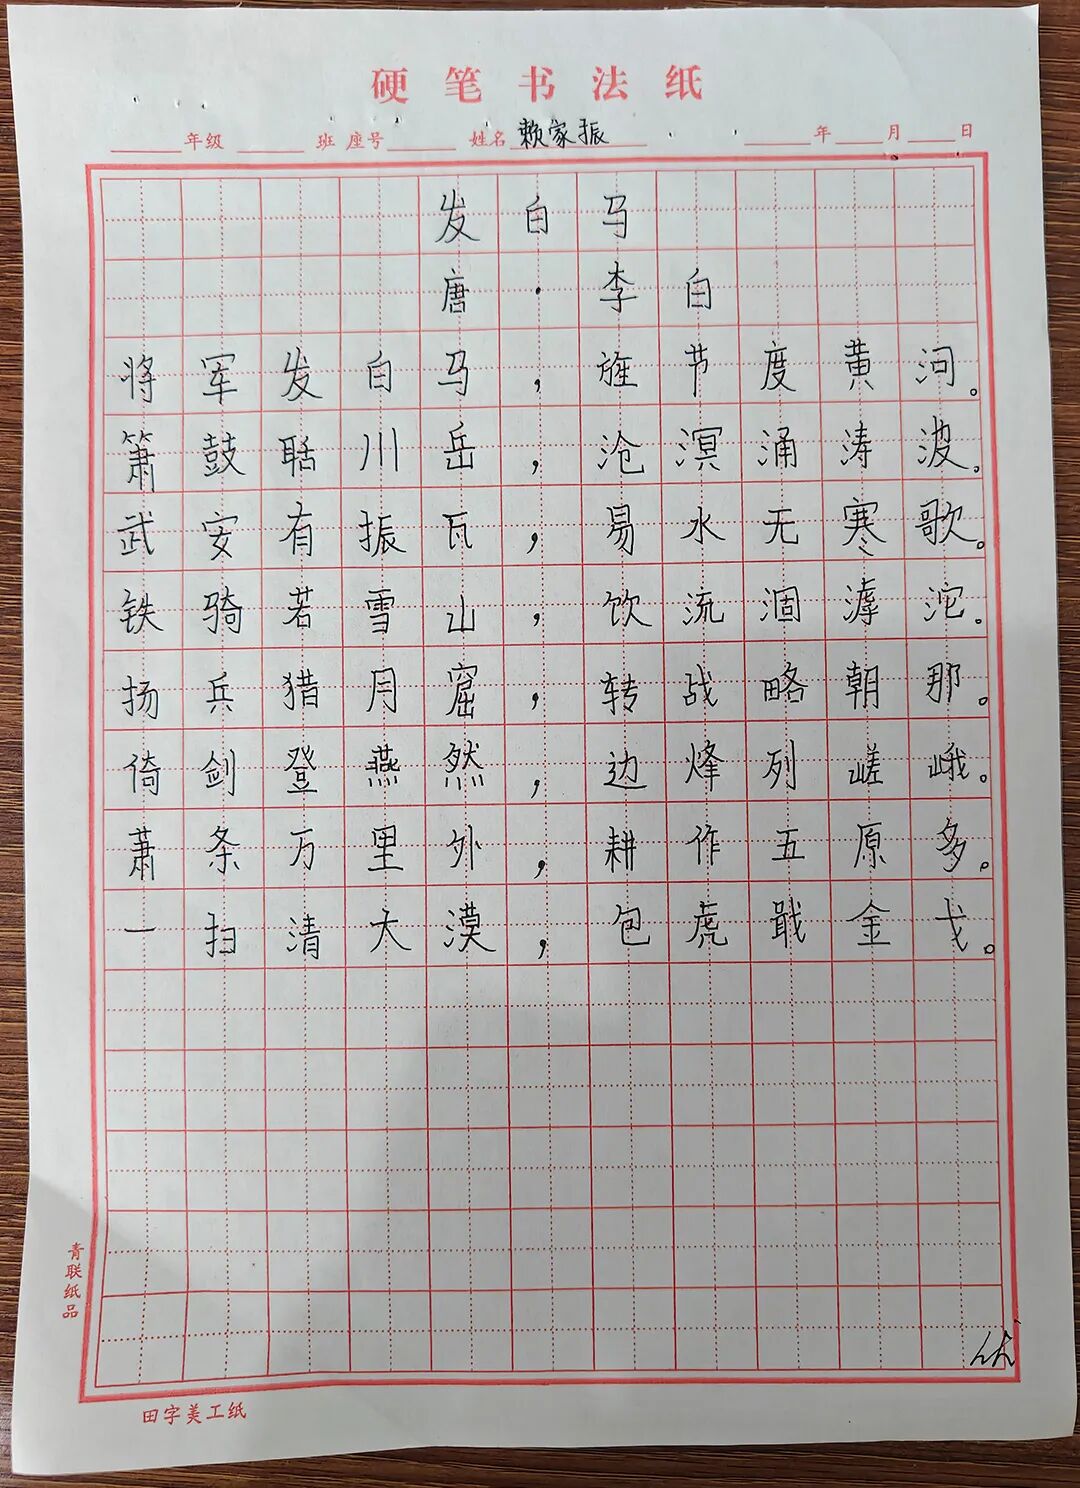 硬笔书法纸
年级 班 座号 姓名 赖家振 年 月 日
发白马
唐·李白
将军发白马，旌节度黄河。
箫鼓聒川岳，沧溟涌涛波。
武安有振瓦，易水无寒歌。
铁骑若雪山，饮流涸滹沱。
扬兵猎月窟，转战略朝那。
倚剑登燕然，边烽列嵯峨。
萧条万里外，耕作五原多。
一扫清大漠，包虎戢金戈。
青联纸品
田字美工纸